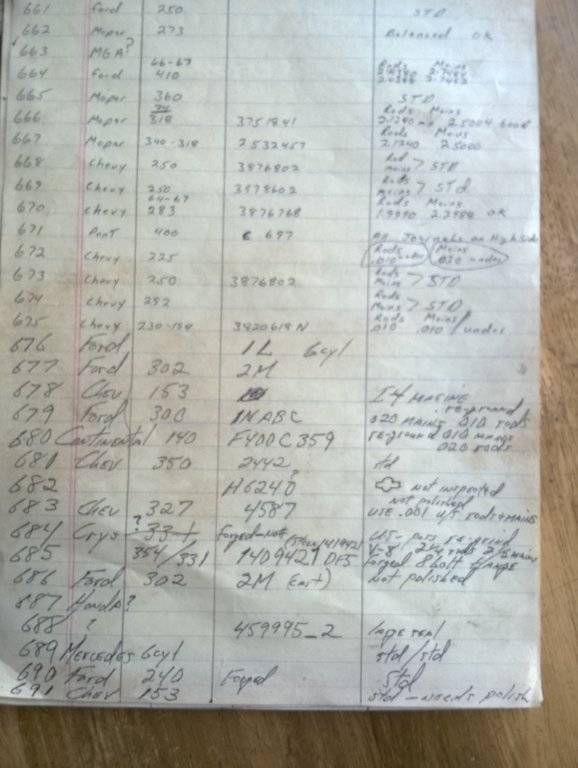 661 Ford 250 STD
662 Mopar 273 Balanced OK
663 MGA?
66-67 Rods Mains
664 Ford 410
665 Mopar 360 STD
74 Rods Mains
666 Mopar 318 3751841 2.1240
Rods Mains
667 Mopar 340-318 2532457 2.1240 2.5000
Rod
668 Chevy 250 3876802 mains > STD
Rods
669 Chevy 250 mains > STD
64-67 Rods Mains
670 Chevy 283 3876768 OK
671 Pont 400 697 All Journals on High Side
Rods Mains
672 Chevy 225 .010 under .020 under
Rods
673 Chevy 250 3876802 Mains > STD
Rods
674 Chevy 292 Mains > STD
Rods Mains
675 Chevy 230-194 3820618N .010 .010 / under
676 Ford 1L 6cyl
677 Ford 302 2M
678 Chev 153 I4 MARINE
679 Ford 300 1NABC reground
020 MAINS 010 RODS
680 Continental 140 F400C359 reground 010 mains
020 rods
681 Chev 350 2442 std
682 H6240 not inspected
not polished
683 Chev 327 4587 USE .001 U/S rods & MAINS
684 Crys ? 331 Forged-not
685 354/331 1409421 DE5 Forged 8 bolt FLANGE
686 Ford 302 2M (cast) not polished
687 Honda?
688 ? 459995-2 Imperial
689 Mercedes 6cyl std/std
690 Ford 240 Forged Std
691 Chev 153 std - needs polish